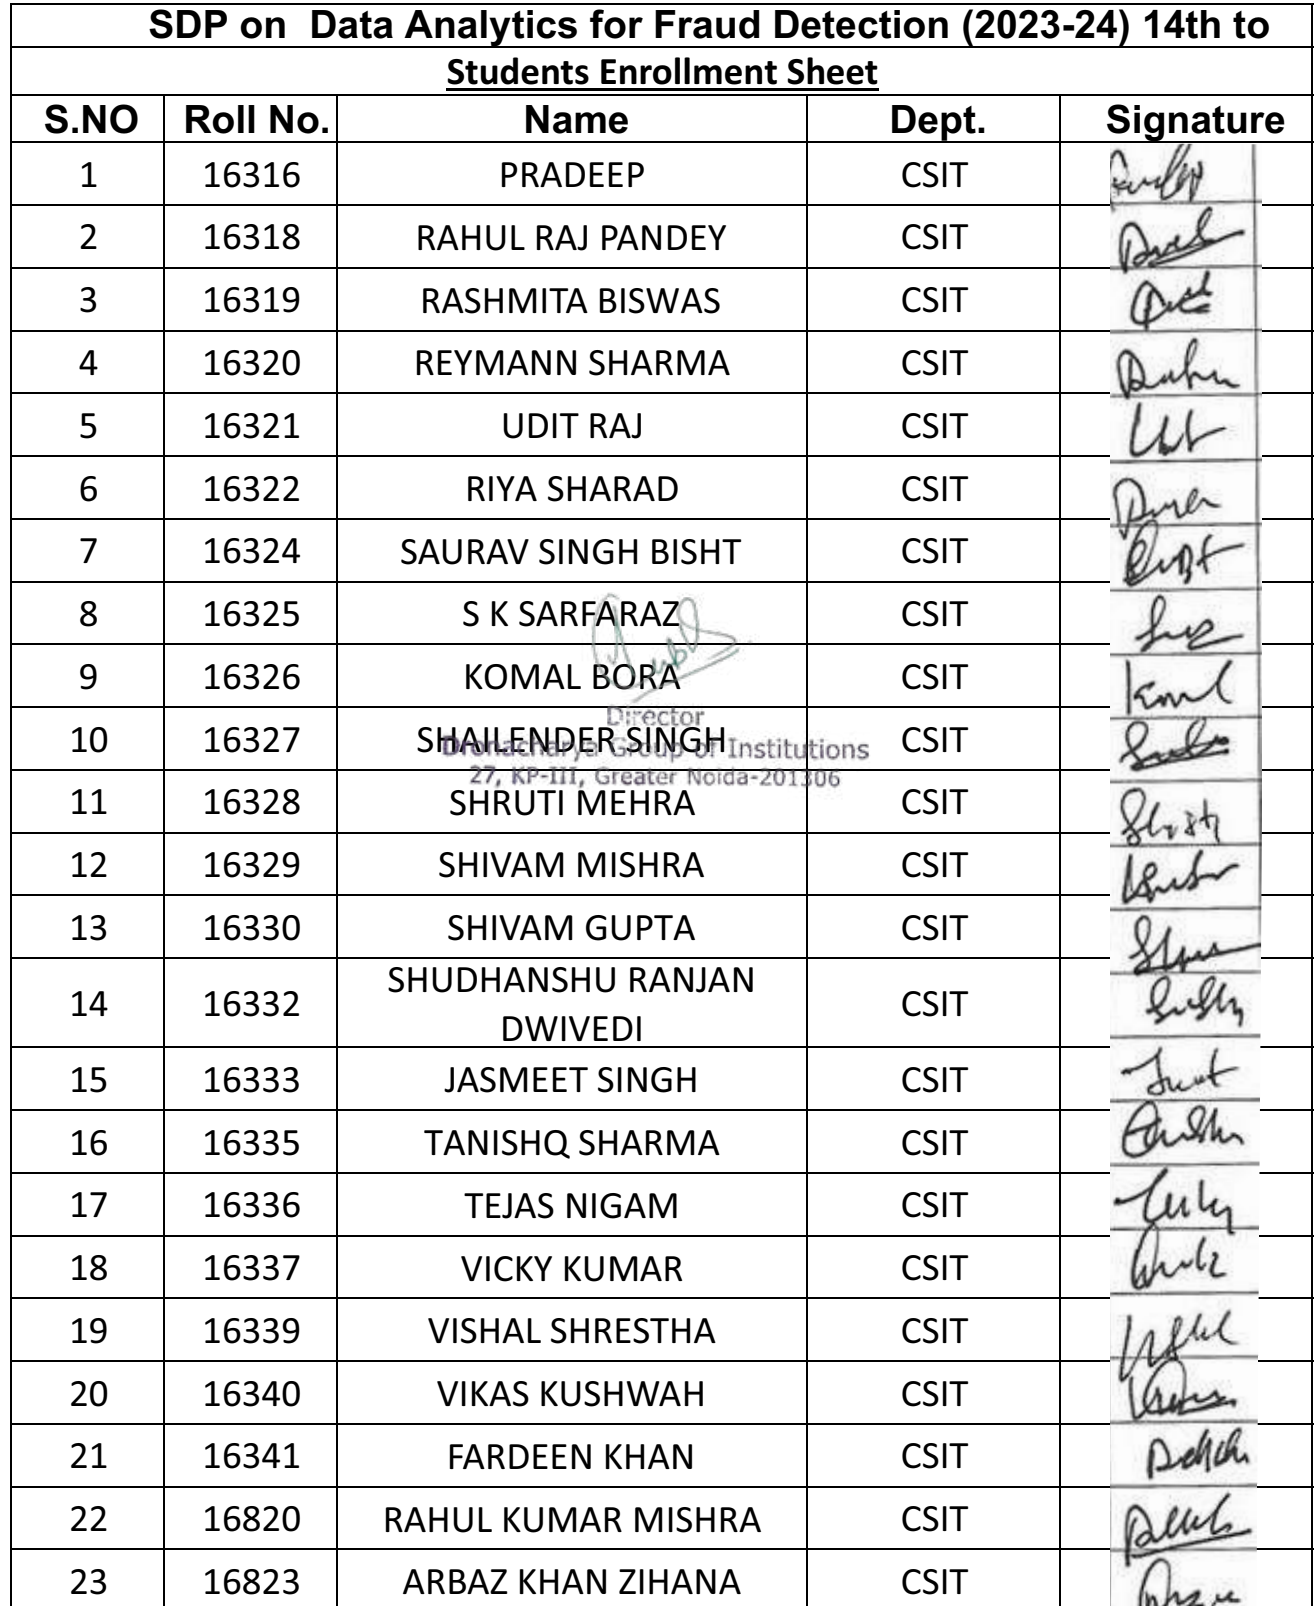 SDP on Data Analytics for Fraud Detection (2023-24) 14th to
Students Enrollment Sheet
S.NO Roll No. Name Dept. Signature
1 16316 PRADEEP CSIT
2 16318 RAHUL RAJ PANDEY CSIT
3 16319 RASHMITA BISWAS CSIT
4 16320 REYMANN SHARMA CSIT
5 16321 UDIT RAJ CSIT
6 16322 RIYA SHARAD CSIT
7 16324 SAURAV SINGH BISHT CSIT
8 16325 S K SARFARAZ CSIT
9 16326 KOMAL BORA CSIT
Director
10 16327 SHAILENDER SINGH CSIT
Dronacharya Group of Institutions
27, KP-III, Greater Noida-201306
11 16328 SHRUTI MEHRA CSIT
12 16329 SHIVAM MISHRA CSIT
13 16330 SHIVAM GUPTA CSIT
14 16332 SHUDHANSHU RANJAN CSIT
DWIVEDI
15 16333 JASMEET SINGH CSIT
16 16335 TANISHQ SHARMA CSIT
17 16336 TEJAS NIGAM CSIT
18 16337 VICKY KUMAR CSIT
19 16339 VISHAL SHRESTHA CSIT
20 16340 VIKAS KUSHWAH CSIT
21 16341 FARDEEN KHAN CSIT
22 16820 RAHUL KUMAR MISHRA CSIT
23 16823 ARBAZ KHAN ZIHANA CSIT